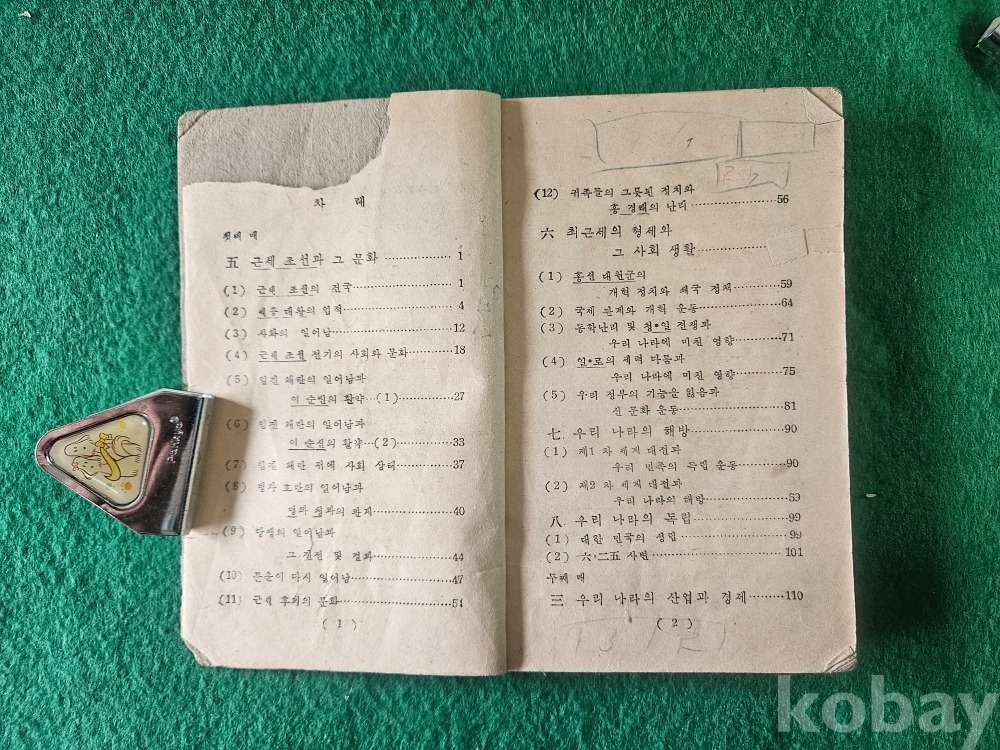 차 례
첫째 매
五 근세 조선과 그 문화 ⋯⋯⋯⋯ 1
(1) 근세 조선의 건국 ⋯⋯⋯⋯ 1
(2) 세종 대왕의 업적 ⋯⋯⋯⋯ 4
(3) 사화의 일어남 ⋯⋯⋯⋯ 12
(4) 근세 조선 전기의 사회와 문화 ⋯⋯ 18
(5) 임진 왜란의 일어남과
이 순신의 활약⋯(1) ⋯⋯ 27
(6) 임진 왜란의 일어남과
이 순신의 활약⋯(2) ⋯⋯ 33
(7) 임진 왜란 뒤에 사회 상태 ⋯⋯ 37
(8) 병자 호란의 일어남과
청과의 관계 ⋯⋯⋯⋯ 40
(9) 당쟁의 일어남과
그 진전 및 결과 ⋯⋯⋯⋯ 44
(10) 문운이 다시 일어남 ⋯⋯⋯⋯ 47
(11) 근세 후기의 문화 ⋯⋯⋯⋯ 54
( 1 )
(12) 귀족들의 그릇된 정치와
홍 경래의 난리 ⋯⋯⋯⋯ 56
六 최근세의 형세와
그 사회 생활 ⋯⋯⋯⋯
(1) 흥선 대원군의
개혁 정치와 쇄국 정책 ⋯⋯ 59
(2) 국제 관계와 개혁 운동 ⋯⋯ 64
(3) 동학난리 및 청•일 전쟁과
우리 나라에 미친 영향 ⋯⋯ 71
(4) 일•로의 세력 다툼과
우리 나라에 미친 영향 ⋯⋯ 75
(5) 우리 정부의 기능을 잃음과
신 문화 운동 ⋯⋯⋯⋯ 81
七 우리 나라의 해방 ⋯⋯⋯⋯ 90
(1) 제1 차 세계 대전과
우리 민족의 독립 운동 ⋯⋯ 90
(2) 제2 차 세계 대전과
우리 나라의 해방 ⋯⋯⋯⋯ 59
八 우리 나라의 독립 ⋯⋯⋯⋯ 99
(1) 대한 민국의 성립 ⋯⋯⋯⋯ 99
(2) 六·二五 사변 ⋯⋯⋯⋯ 101
두째 매
三 우리 나라의 산업과 경제 ⋯⋯ 110
( 2 )
kobay